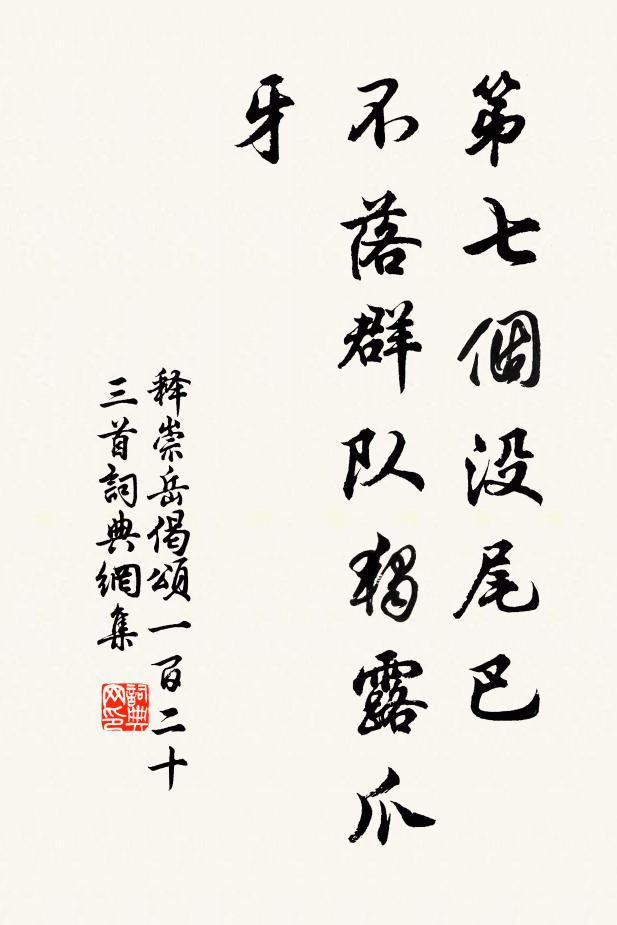 第七個没尾巴
不落群队獨露爪
牙
释崇岳偈頌一百二十
三首詞典網集
詞典
网印